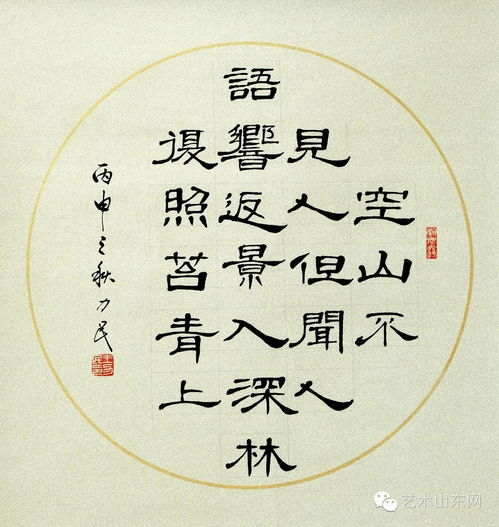 空山不
見人但聞人
語響返景入深林
復照苔青上
丙申之秋力民
艺术山东网